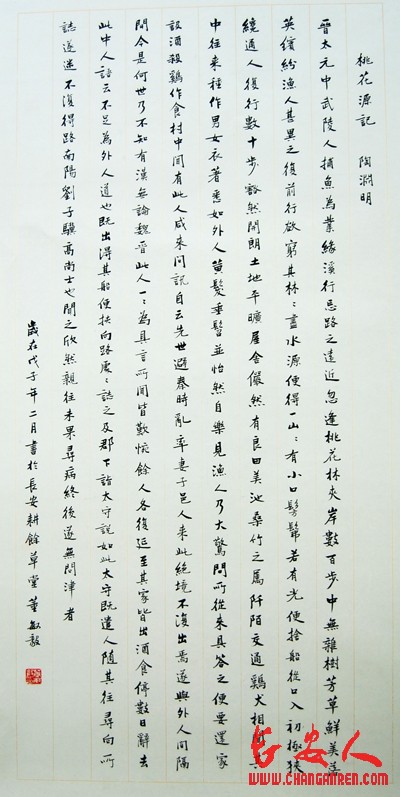 桃花源記　陶淵明
晉太元中武陵人捕魚為業緣溪行忘路之遠近忽逢桃花林夾岸數百步中無雜樹芳草鮮美落
英繽紛漁人甚異之復前行欲窮其林：盡水源便得一山：有小口髣髴若有光便捨船從口入初極狹
纔通人復行數十步豁然開朗土地平曠屋舍儼然有良田美池桑竹之屬阡陌交通鷄犬相聞其
中往來種作男女衣著悉如外人黃髮垂髫並怡然自樂見漁人乃大驚問所從來具答之便要還家
設酒殺鷄作食村中聞有此人咸來問訊自云先世避秦時亂率妻子邑人來此絕境不復出焉遂與外人間隔
問今是何世乃不知有漢無論魏晉此人一：為具言所聞皆歎惋餘人各復延至其家皆出酒食停數日辭去
此中人語云不足為外人道也既出得其船便扶向路處：誌之及郡下詣太守說如此太守既遣人隨其往尋向所
誌遂迷不復得路南陽劉子驥高尚士也聞之欣然親往未果尋病終後遂無問津者
歲在戊子年二月書於長安耕餘草堂董敏毅
长安人
www.changanren.com